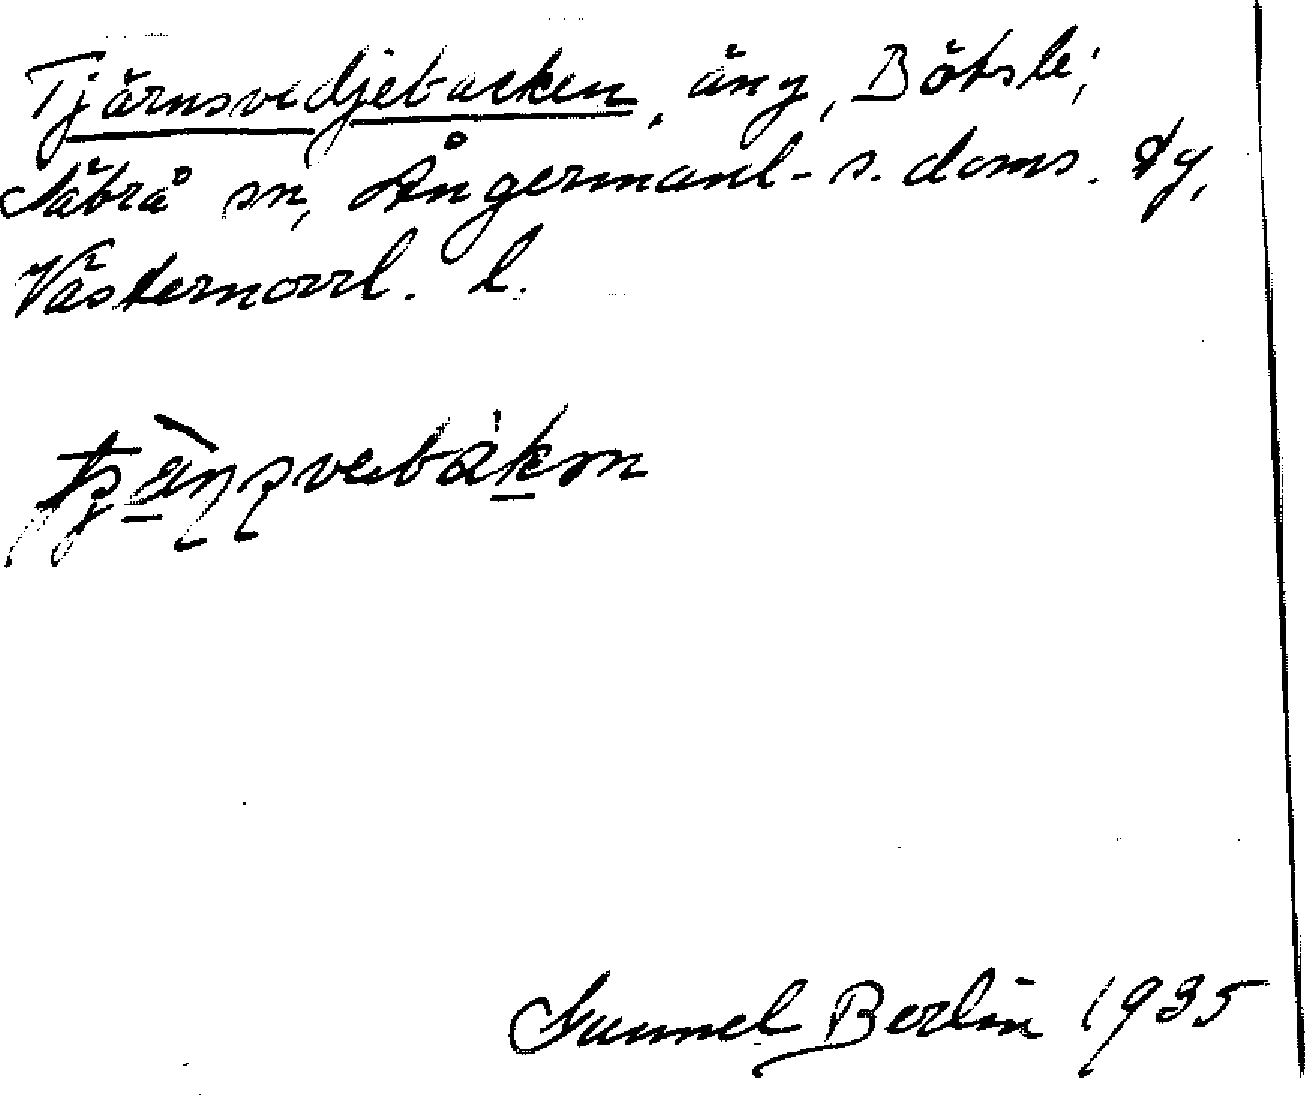 Tjärnsvedjebacken, äng, Bötsle,
Säbrå sn, Ångermanl. s. doms. tg,
Västernorrl. l.
Gunnel Berlin 1935